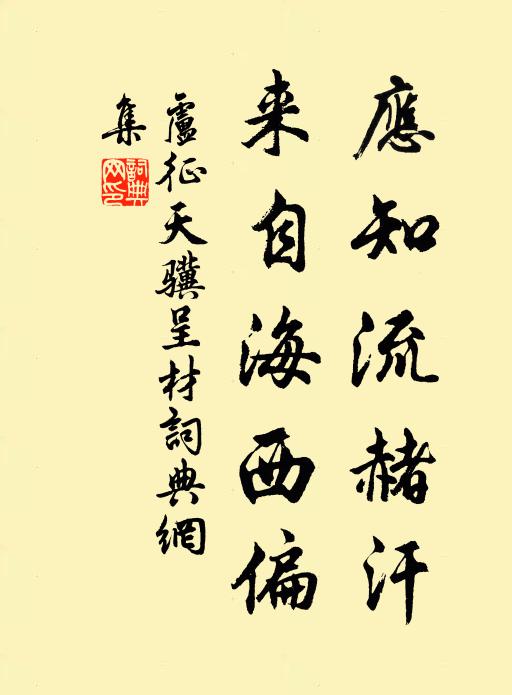 應知流赭汗
来自海西偏
盧征天骥呈材詞典網
集
詞典
网印